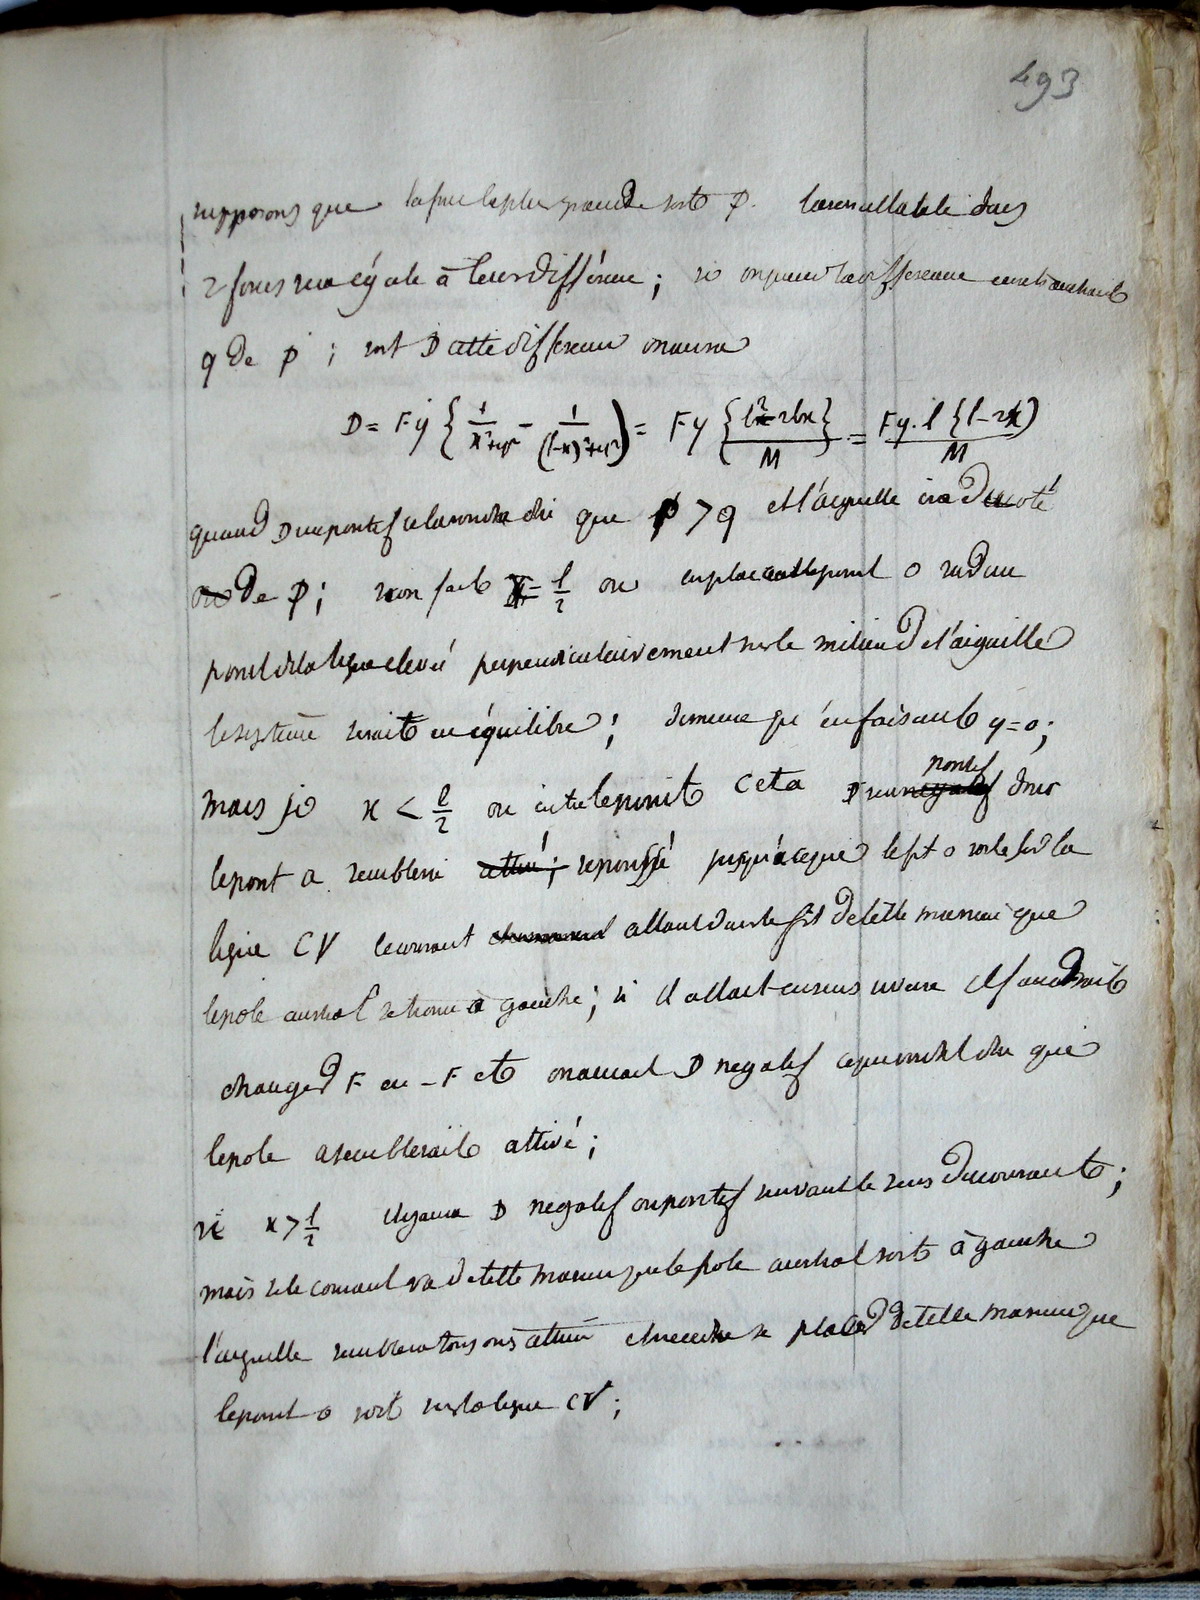 493
supposons que la force la plus grande soit p. la resultante des
2 forces sera égale à leur différence ; si on prend la difference en retranchant
q de p ; soit D cette difference on aura
D = Fy { 1/x²+y² - 1/(l-x)²+y² } = Fy {l² - 2lx}/M = Fy. l {l-2x}/M
quand D sera positif cela voudra dire que p > q et l'aiguille ira du coté
de p ; si on fait x = l/2 ou en placant le point o sur un
point de la ligne elevée perpendiculairement sur le milieu de l'aiguille
le système serait en équilibre ; de meme qu'en faisant y = o ;
mais si x < l/2 ou entre le point C et a D sera negatif positif donc
le point a semblera attiré ; repoussé jusqu'à ce que le pt o soit sur la
ligne CV le courant allant dans le fil de telle maniere que
le pole austral se trouve à gauche ; si il allait en sens inverse il faudrait
changer F en - F et on aurait D negatif ce qui voudrait dire que
le pole a semblerait attiré ;
si x > l/2 il y aura D negatif ou positif suivant le sens du courant ;
mais si le courant va de telle maniere que le pole austral soit à gauche
l'aiguille semblera toujours attirée et viendra se placer de telle maniere que
le point o soit sur la ligne CV ;